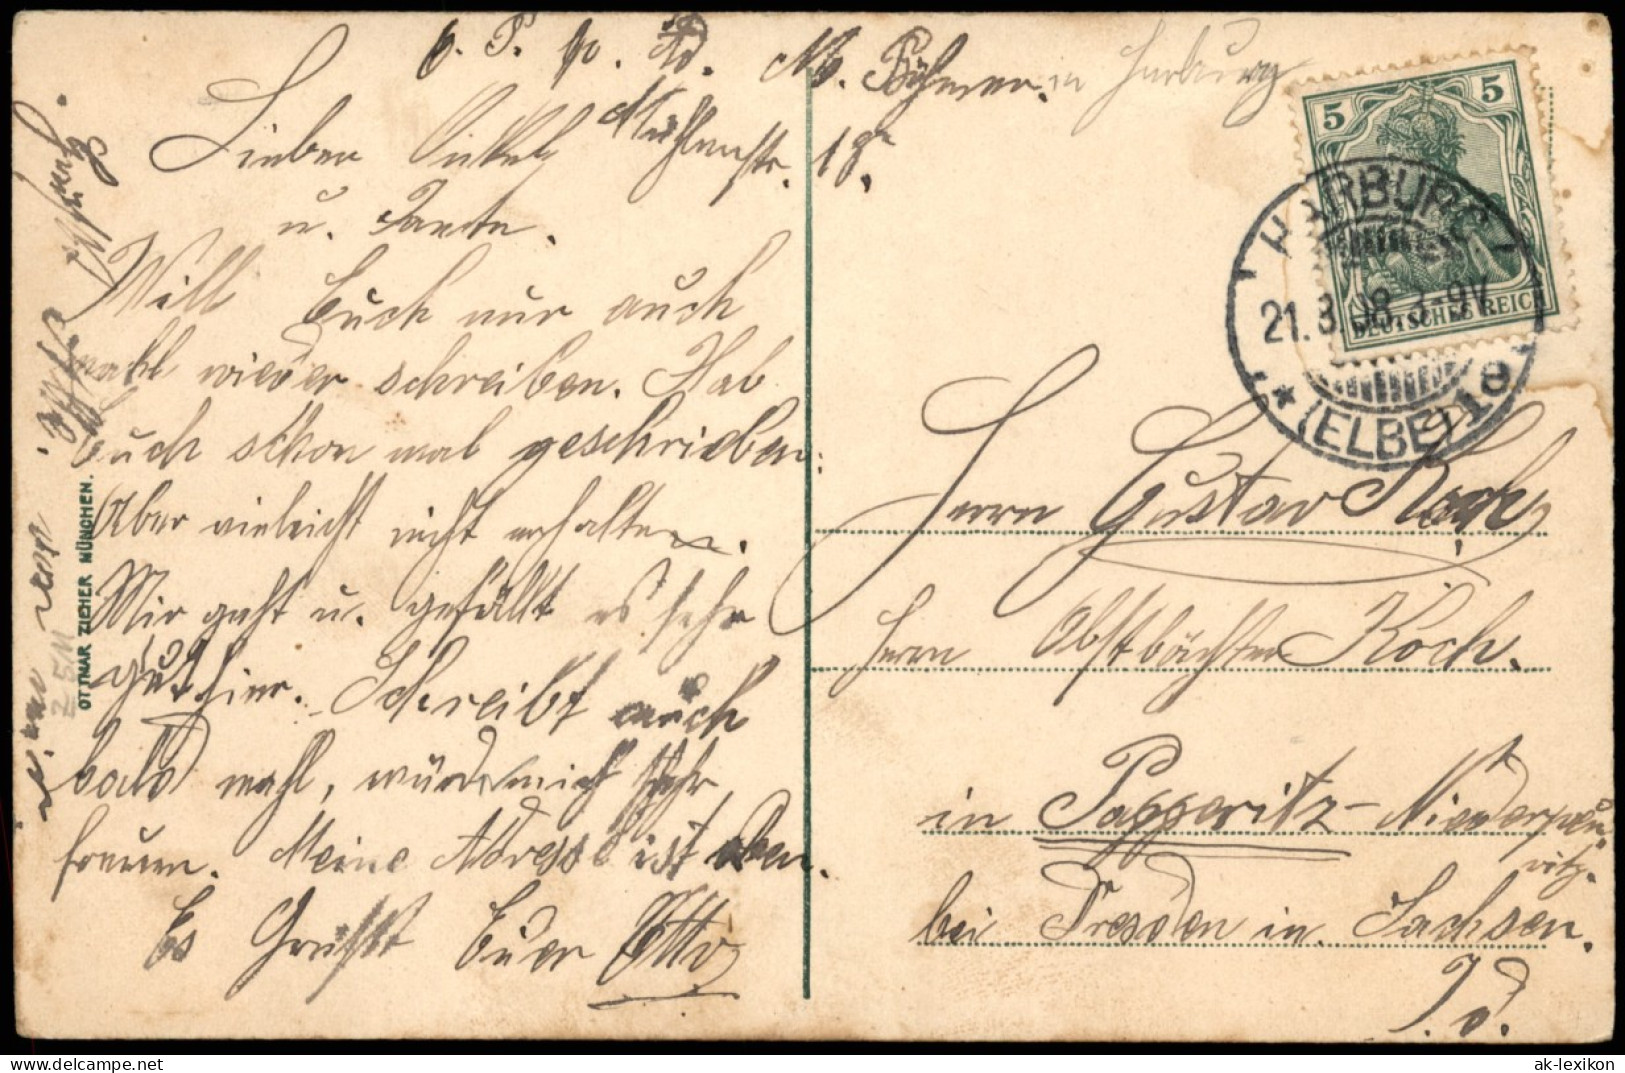 Ad. M. Böhmer. in Harburg
Mühlenstr. 18.
Lieber Onkel
u. Tante.
Will Euch nur auch
mahl wieder schreiben. Hab
Euch schon mal geschrieben:
Aber vieleicht nicht erhalten.
Mir geht u. gefällt es sehr
gut hier. Schreibt auch
bald mahl, würde mich sehr
freuen. Meine Adresse ist oben.
Es Grüßt Euer Otto
OTTMAR ZIEHER MÜNCHEN.
5 5
DEUTSCHES REICH
HARBURG
21.3.08. 8-9V.
* (ELBE) 1e
Herrn Gustav Koch,
Herrn Obstbächter Koch.
in Pappritz-Niederpoy-
ritz.
bei Dresden in Sachsen.
ak-lexikon